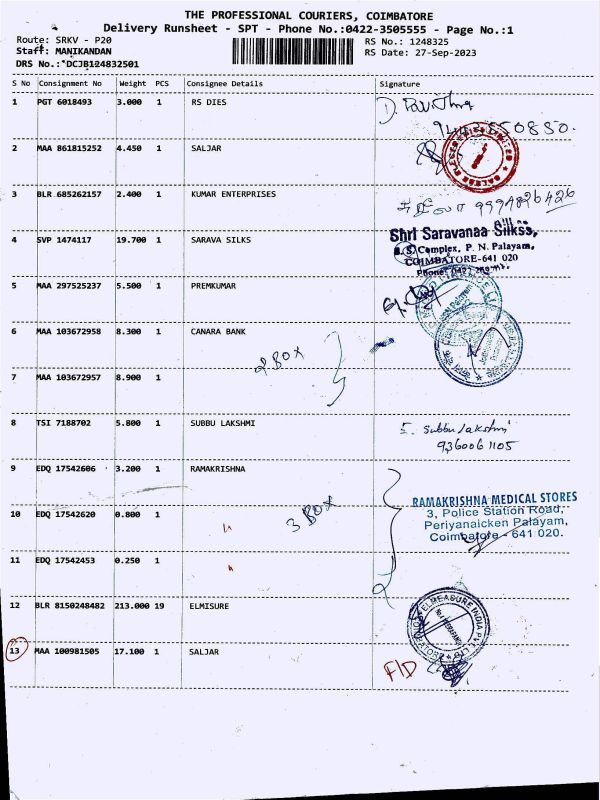 THE PROFESSIONAL COURIERS, COIMBATORE
Delivery Runsheet - SPT - Phone No.:0422-3505555 - Page No.:1
Route: SRKV - P20
RS No.: 1248325
Staff: MANIKANDAN
RS Date: 27-Sep-2023
DRS No.: DCJB124832501
S No Consignment No Weight PCS Consignee Details Signature
1 PGT 6018493 3.000 1 RS DIES
2 MAA 861815252 4.450 1 SALJAR
3 BLR 685262157 2.400 1 KUMAR ENTERPRISES 9994826426
4 SVP 1474117 19.700 1 SARAVA SILKS
Shri Saravanaa Silkss,
Complex, P. N. Palayam,
COIMBATORE-641 020
5 MAA 297525237 5.500 1 PREMKUMAR
6 MAA 103672958 8.300 1 CANARA BANK
2 BOX
7 MAA 103672957 8.900 1
8 TSI 7188702 5.800 1 SUBBU LAKSHMI
S. Subbulakshmi
9360061105
9 EDQ 17542606 3.200 1 RAMAKRISHNA
RAMAKRISHNA MEDICAL STORES
3, Police Station Road,
Periyanaicken Palayam,
Coimbatore - 641 020.
10 EDQ 17542620 0.800 1 " 3 BOX
11 EDQ 17542453 0.250 1 "
12 BLR 8150248482 213.000 19 ELMISURE
ELMEASURE INDIA PVT. LTD
13 MAA 100981505 17.100 1 SALJAR
F/D